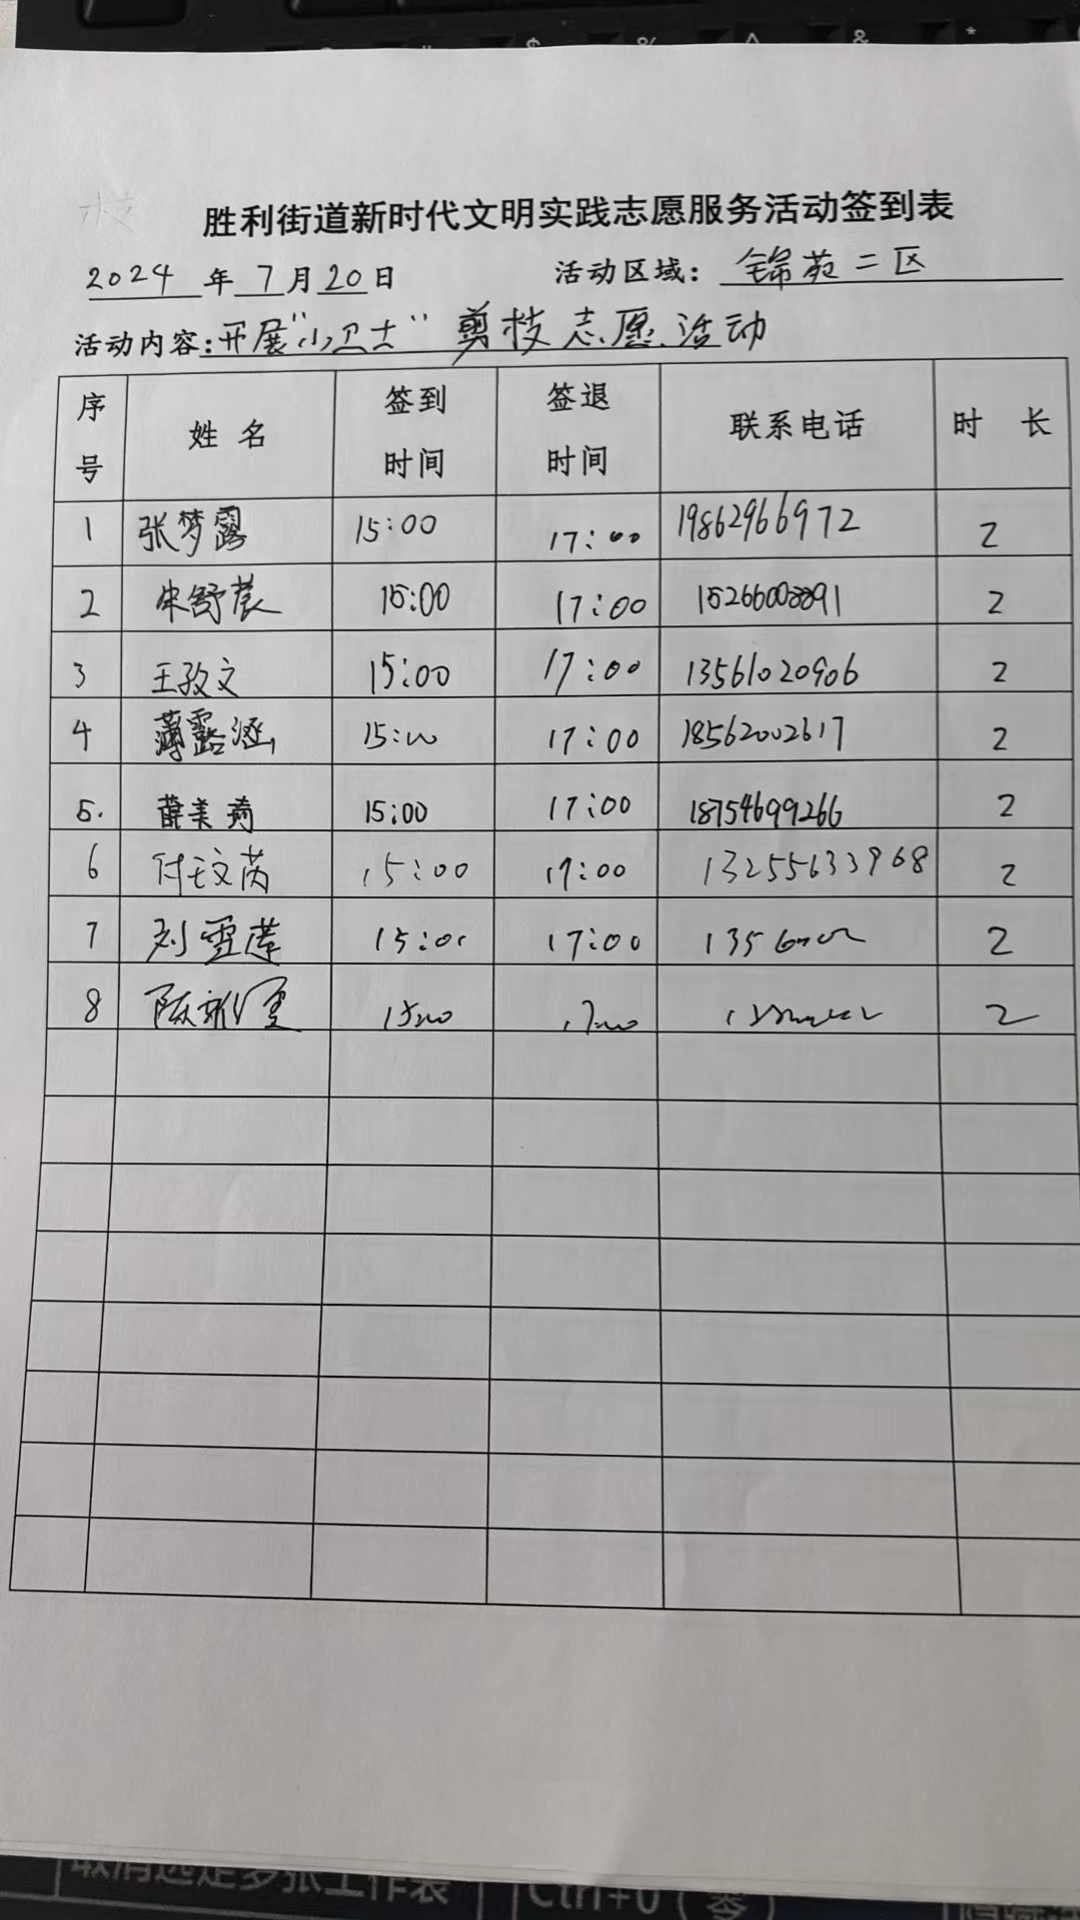 胜利街道新时代文明实践志愿服务活动签到表
2024年7月20日 活动区域：锦苑二区
活动内容：开展"小卫士"剪枝志愿活动
序号 姓名 签到时间 签退时间 联系电话 时长
1 张梦露 15:00 17:00 19862966972 2
2 朱舒晨 15:00 17:00 15266008891 2
3 王孜文 15:00 17:00 13561020906 2
4 薄露涵 15:00 17:00 18562002617 2
5. 薛美琦 15:00 17:00 18754699266 2
6 付文芮 15:00 17:00 13255633968 2
7 刘雪莲 15:00 17:00 2
8 15:00 17:00 2
取消选定多张工作表 Ctrl+0（零